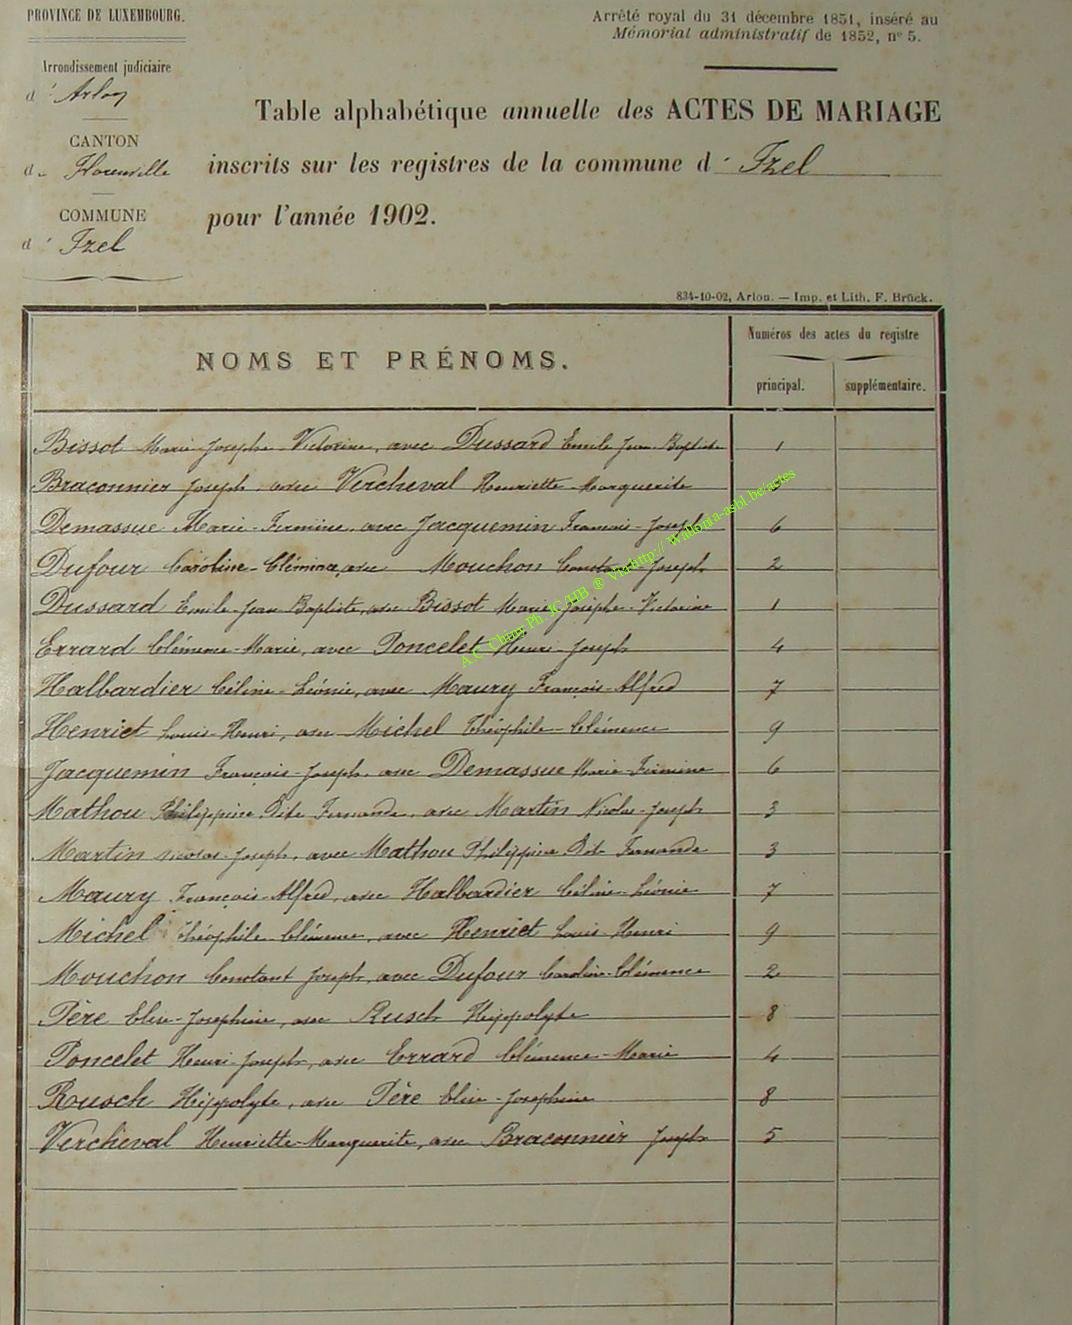 PROVINCE DE LUXEMBOURG.
Arrêté royal du 31 décembre 1851, inséré au
Mémorial administratif de 1852, n° 5.
Arrondissement judiciaire
d' Arlon
Table alphabétique annuelle des ACTES DE MARIAGE
CANTON
de Florenville
inscrits sur les registres de la commune d' Izel
COMMUNE
d' Izel
pour l'année 1902.
834-10-02, Arlon. — Imp. et Lith. F. Brück.
NOMS ET PRÉNOMS.
Numéros des actes du registre
principal. supplémentaire.
Bissot Marie-Josephe-Victorine, avec Dussard Emile Jean-Baptiste 1
Braconnier Joseph, avec Vercheval Henriette-Marguerite
Demassue Marie-Firmine, avec Jacquemin François-Joseph 6
Dufour Caroline-Clémence, avec Mouchon Constant-Joseph 2
Dussard Emile-Jean Baptiste, avec Bissot Marie-Josephe-Victorine 1
Errard Clémence-Marie, avec Poncelet Henri-Joseph 4
Halbardier Céline-Léonie, avec Maury François-Alfred 7
Henriet Louis-Henri, avec Michel Théophile-Clémence 9
Jacquemin François-Joseph, avec Demassue Marie-Firmine 6
Mathou Philippine Fernande, avec Martin Nicolas-Joseph 3
Martin Nicolas-Joseph, avec Mathou Philippine Fernande 3
Maury François-Alfred, avec Halbardier Céline-Léonie 7
Michel Théophile-Clémence, avec Henriet Louis-Henri 9
Mouchon Constant Joseph, avec Dufour Caroline-Clémence 2
Père Elise-Josephine, avec Rusch Hippolyte 8
Poncelet Henri-Joseph, avec Errard Clémence-Marie 4
Rousch Hippolyte, avec Père Elise-Josephine 8
Vercheval Henriette-Marguerite, avec Braconnier Joseph 5
A.C. Chiny Ph. JC/HB ® Via http:// Wallonia-asbl.be/actes